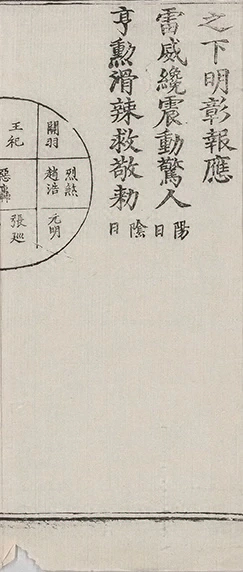 之下明彰報應
雷威纔震動驚人
陽日陰日
亨勳滑辣救敬勑
關羽
王祀
烈煞
趙浩
元明
張廵